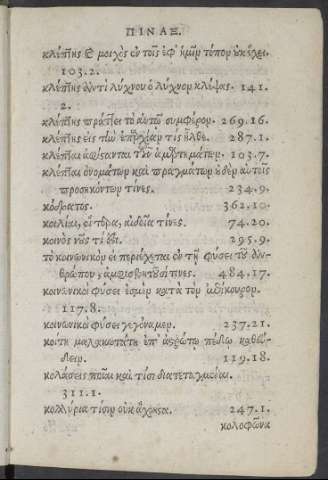 ΠΙΝΑΞ.
κλέπτης & μοιχὸς ἐν τοῖς ἐφ' ἡμῖν τόπον οὐκ ἔχει.
103.2.
κλέπτης ἀντὶ λύχνου ὁ λύχνον κλέψας. 141.
2.
κλέπτης πράττει τὸ αὑτῷ συμφέρον. 269.16.
κλέπτης εἰς τὴν ἐπαρχίαν τίς ἦλθε. 287.1.
κλέπται ἀφίστανται τῶν ἁμαρτημάτων. 103.7.
κλέπται ὀνομάτων καὶ πραγμάτων οὐδὲν αὐτοῖς
προσηκόντων τίνες. 234.9.
κόδρατος. 362.10.
κοιλίαι, ἔντερα, αἰδοῖα τίνες. 74.20.
κοινὸς νοῦς τί ἐστι. 295.9.
τὸ κοινωνικὸν εἰ περιέχεται ἐν τῇ φύσει τοῦ ἀν-
θρώπου, ἀμφισβητοῦσί τινες. 484.17.
κοινωνικοὶ φύσει ἐσμὲν κατὰ τὸν ἐπίκουρον.
117.8.
κοινωνικοὶ φύσει γεγόναμεν. 237.21.
κοίτη μαλακωτάτη ἐπ' ἀστρώτῳ πέδῳ καθεύ-
δειν. 119.18.
κολάσεις ποῖαι καὶ τίσι διατεταγμέναι.
311.1.
κολλύρια τίσιν οὐκ ἄχρηστα. 247.1.
κολοφῶνα